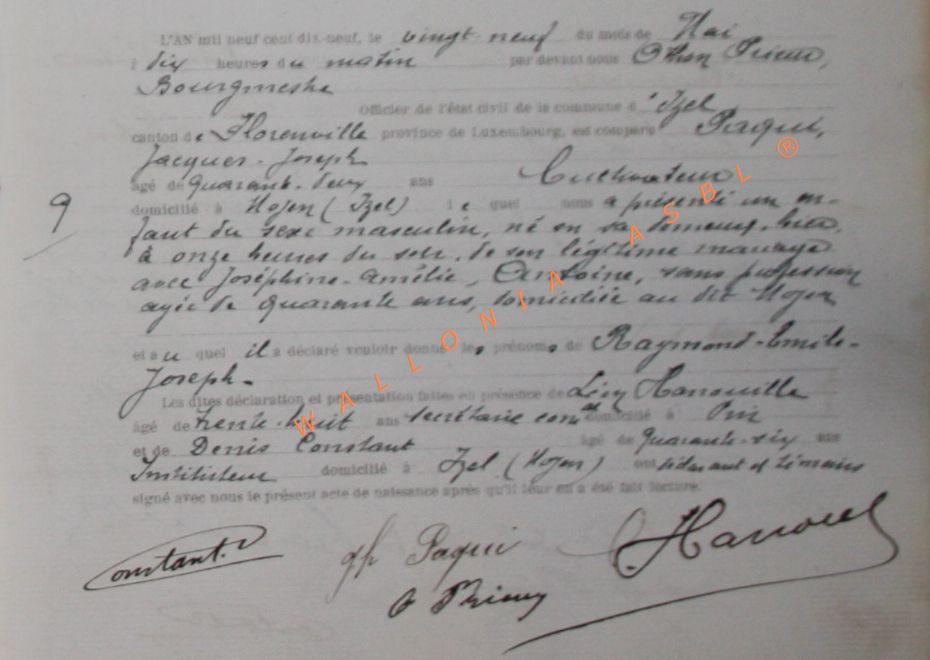 L'AN mil neuf cent dix-neuf, le vingt-neuf du mois de Mai
à dix heures du matin par devant nous Othon Prieur,
Bourgmestre
Officier de l'état civil de la commune d'Izel
canton de Florenville province de Luxembourg, est comparu Paqui,
Jacques-Joseph
âgé de quarante-deux ans Cultivateur
domicilié à Moyen (Izel) lequel nous a présenté un en-
9
fant du sexe masculin, né en sa demeure, hier,
à onze heures du soir, de son légitime mariage
avec Joséphine-Amélie, Antoine, sans profession
agée de quarante ans, domiciliée au dit Moyen
et au quel il a déclaré vouloir donner les prénoms de Raymond-Emile-
Joseph.
Les dites déclaration et présentation faites en présence de Léon Hanouille
âgé de trente-huit ans secrétaire comal domicilié à Pin
et de Denis Constant âgé de quarante-six ans
Instituteur domicilié à Izel (Moyen) ont déclarant et témoins
signé avec nous le présent acte de naissance après qu'il leur en a été fait lecture.
Constant. D Paqui Hanouel
O Prieur
WALLONIA ASBL ®